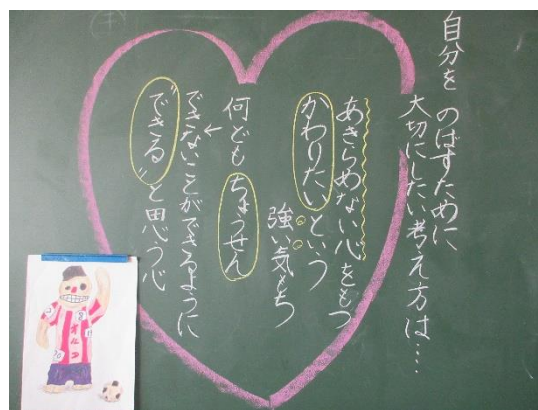 自分を のばすために
大切にしたい考え方は…
あきらめない心をもつ
かわりたいという
強い気もち
何どもちょうせん
できないことができるように
"できる"と思う心